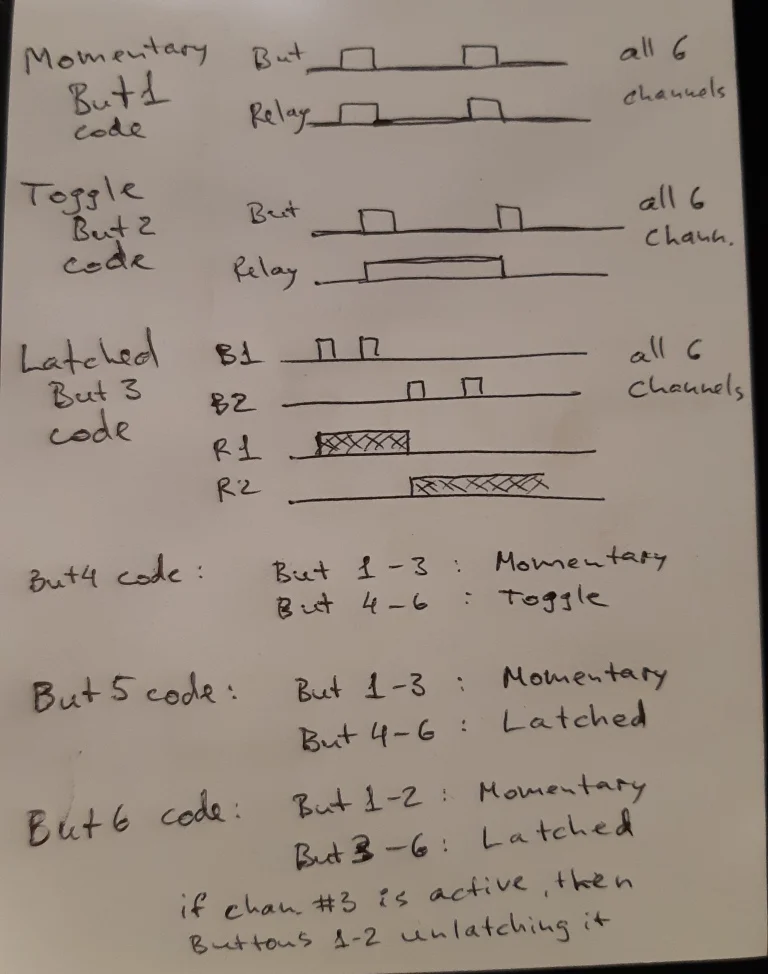 Momentary But all 6
But 1 Relay channels
code
Toggle But all 6
But 2 Chann.
code Relay
Latched B1 all 6
But 3 B2 Channels
code R1
R2
But4 code : But 1-3 : Momentary
But 4-6 : Toggle
But 5 code : But 1-3 : Momentary
But 4-6 : Latched
But 6 code : But 1-2 : Momentary
But 3-6 : Latched
if chan. #3 is active, then
Buttons 1-2 unlatching it